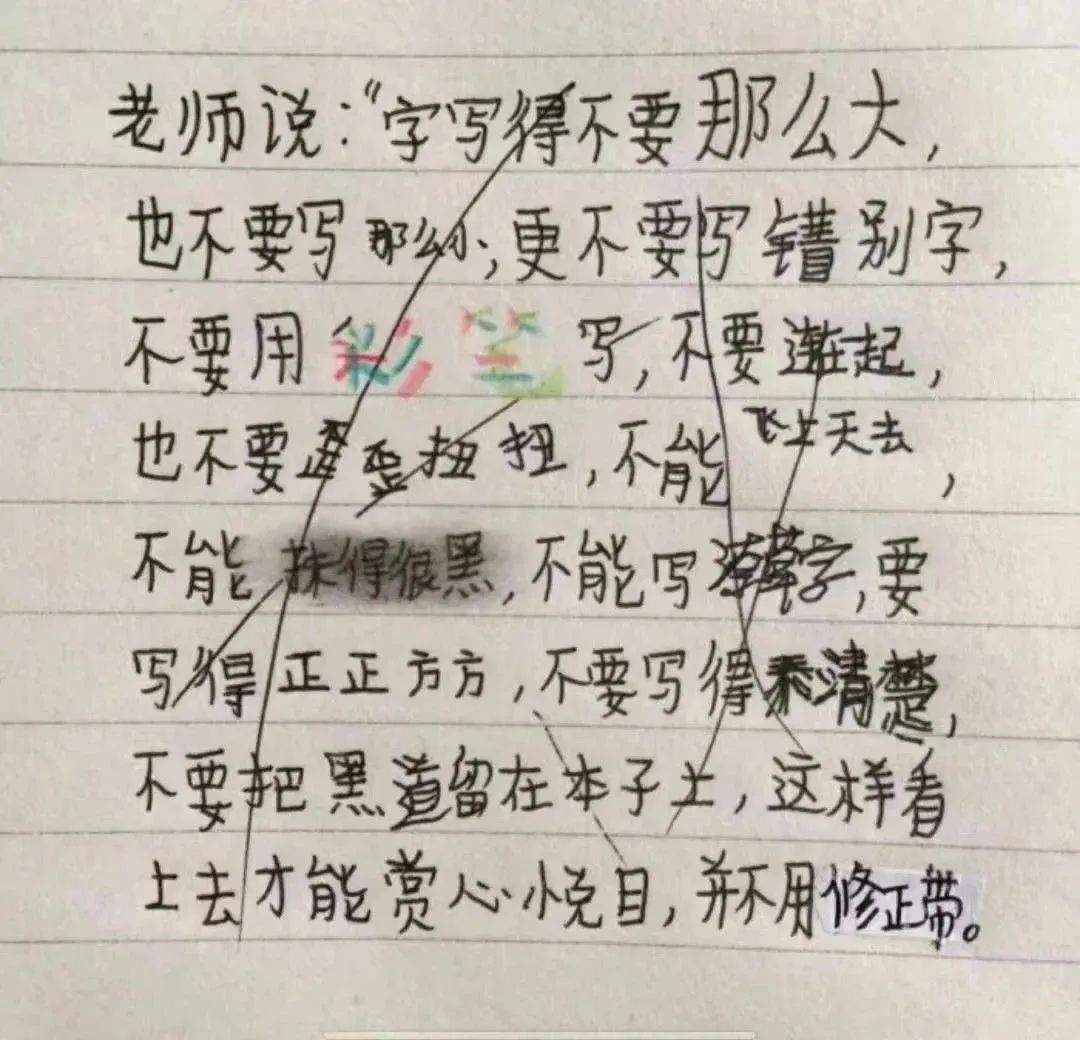 老师说：“字写得不要那么大，
也不要写那么小，更不要写错别字，
不要用彩笔写，不要连在一起，
也不要歪歪扭扭，不能飞上天去，
不能抹得很黑，不能写潦草字，要
写得正正方方，不要写得不清楚，
不要把黑道留在本子上，这样看
上去才能赏心悦目，并不用修正带。